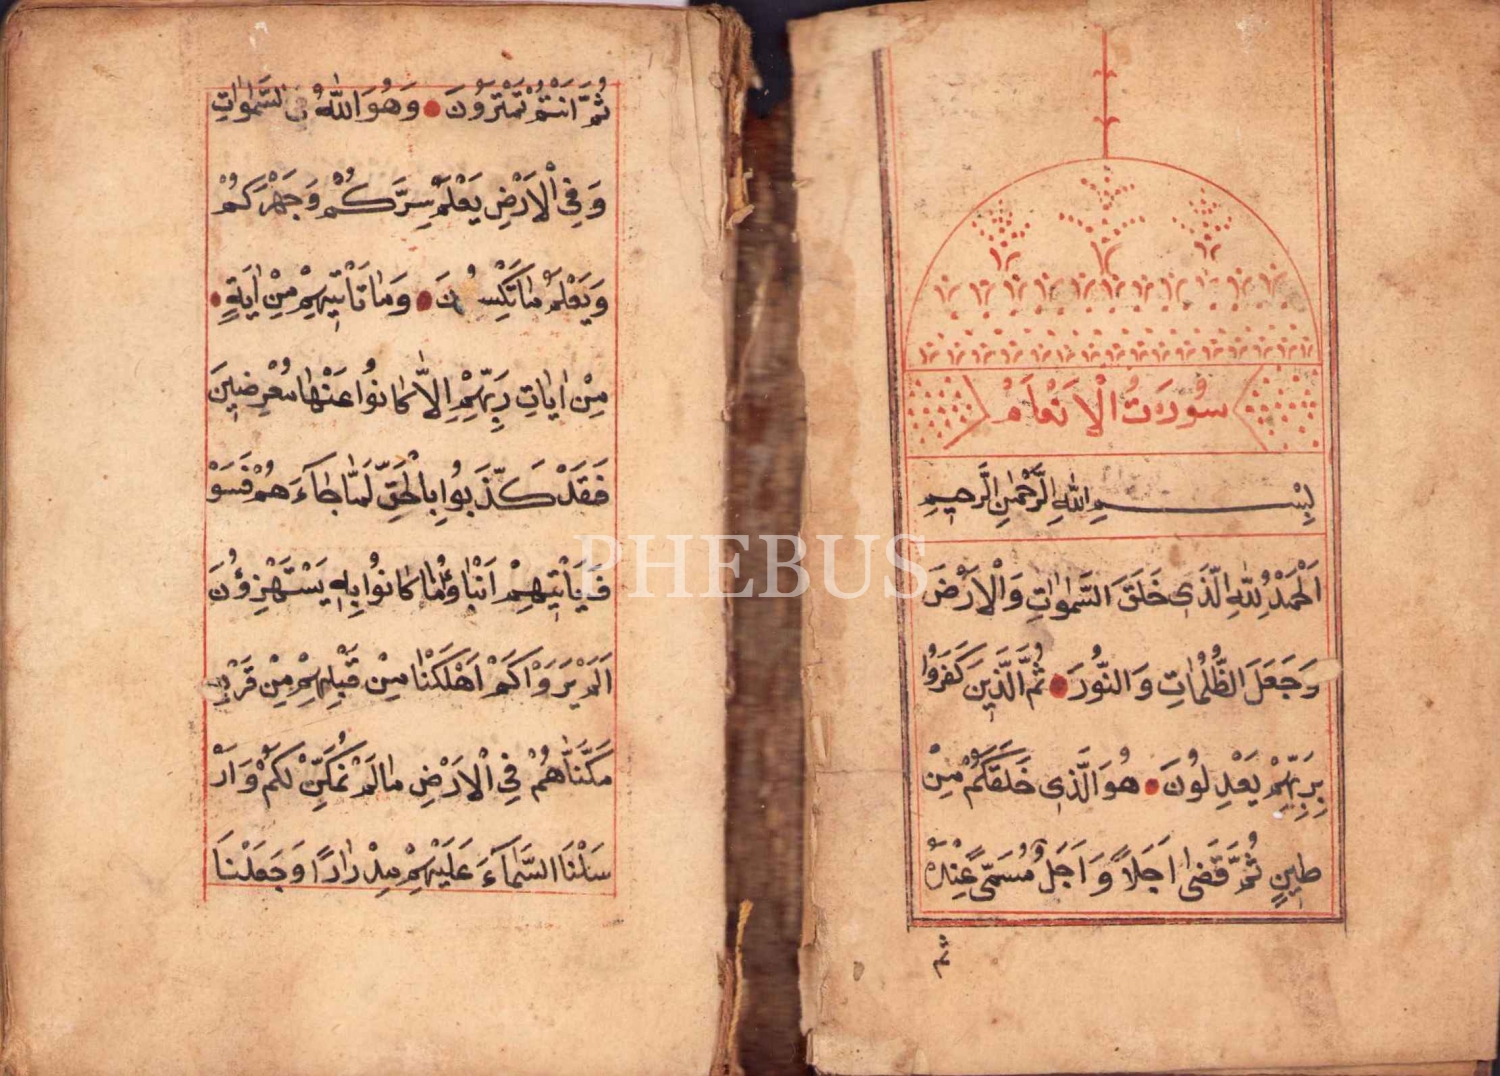 سُورَتُ الْاَنْعَامُ
بِسْمِ اللّٰهِ الرَّحْمٰنِ الرَّحِيمِ
اَلْحَمْدُ لِلّٰهِ الَّذِى خَلَقَ السَّمٰوَاتِ وَالْاَرْضَ
وَجَعَلَ الظُّلُمَاتِ وَالنُّورَ ثُمَّ الَّذِينَ كَفَرُوا
بِرَبِّهِمْ يَعْدِلُونَ هُوَ الَّذِى خَلَقَكُمْ مِنْ
طِينٍ ثُمَّ قَضٰى اَجَلاً وَاَجَلٌ مُسَمًّى عِنْدَهُ
ثم
ثُمَّ اَنْتُمْ تَمْتَرُونَ وَهُوَ اللّٰهُ فِى السَّمٰوَاتِ
وَفِى الْاَرْضِ يَعْلَمُ سِرَّكُمْ وَجَهْرَكُمْ
وَيَعْلَمُ مَا تَكْسِبُونَ وَمَا تَاْتِيهِمْ مِنْ اٰيَةٍ
مِنْ اٰيَاتِ رَبِّهِمْ اِلَّا كَانُوا عَنْهَا مُعْرِضِينَ
فَقَدْ كَذَّبُوا بِالْحَقِّ لَمَّا جَاءَهُمْ فَسَوْ
فَ يَاْتِيهِمْ اَنْبَاؤُ مَا كَانُوا بِهِ يَسْتَهْزِؤُنَ
اَلَمْ يَرَوْا كَمْ اَهْلَكْنَا مِنْ قَبْلِهِمْ مِنْ قَرْنٍ
مَكَّنَّاهُمْ فِى الْاَرْضِ مَا لَمْ نُمَكِّنْ لَكُمْ وَاَرْ
سَلْنَا السَّمَاءَ عَلَيْهِمْ مِدْرَارًا وَجَعَلْنَا
PHEBUS